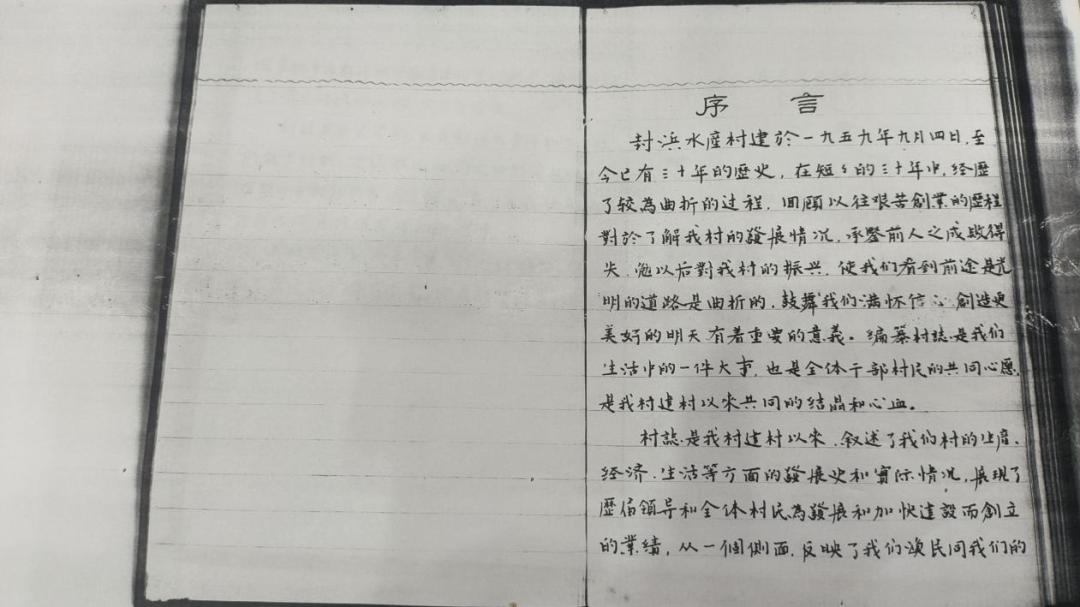 序 言
封浜水產村建於一九五九年九月四日,至
今已有三十年的歷史,在短々的三十年中,经歷
了较為曲折的过程,回顧以往艰苦創業的歷程
對於了解我村的發展情况,承鑒前人之成败得
失,勉以后對我村的振兴,使我们看到前途是光
明的道路是曲折的,鼓舞我们满怀信心,創造更
美好的明天有着重要的意義。编纂村誌是我们
生活中的一件大事,也是全体干部村民的共同心愿,
是我村建村以来共同的结晶和心血。
村誌是我村建村以来,叙述了我们村的生產、
经济、生活等方面的發展史和實际情况,展现了
歷届领导和全体村民為發展和加快建設而創立
的業绩,从一個侧面,反映了我们渔民同我们的